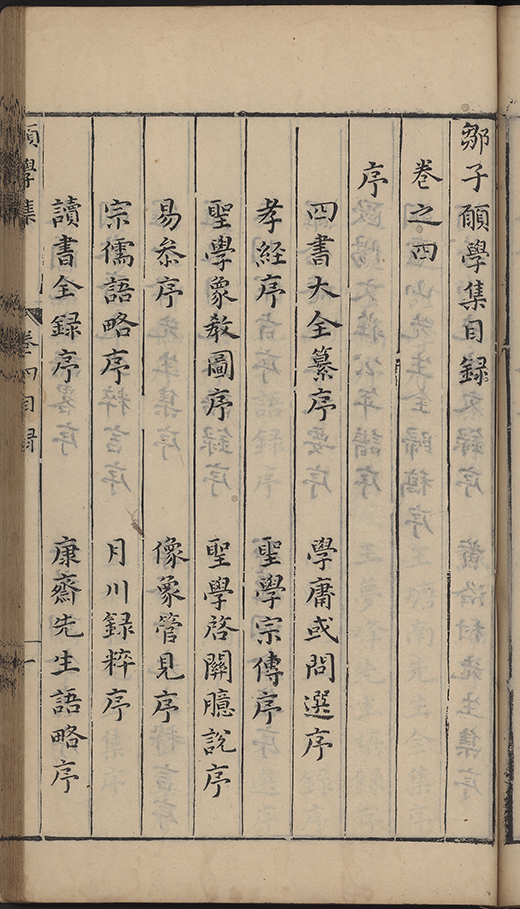 鄒子願學集目錄
卷之四
序
四書大全纂序　學庸或問選序
孝經序　聖學宗傳序
聖學象教圖序　聖學啓關臆說序
易叅序　像象管見序
宗儒語略序　月川録粹序
讀書全録序　康齋先生語略序
願學集　卷四目録　一